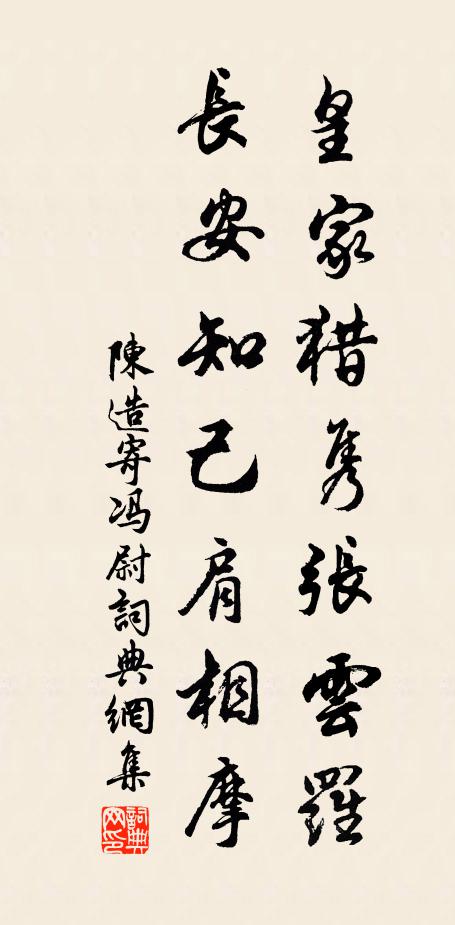 皇家猎隽張雲羅
長安知己肩相摩
陳造寄冯尉詞典網集
詞典网印